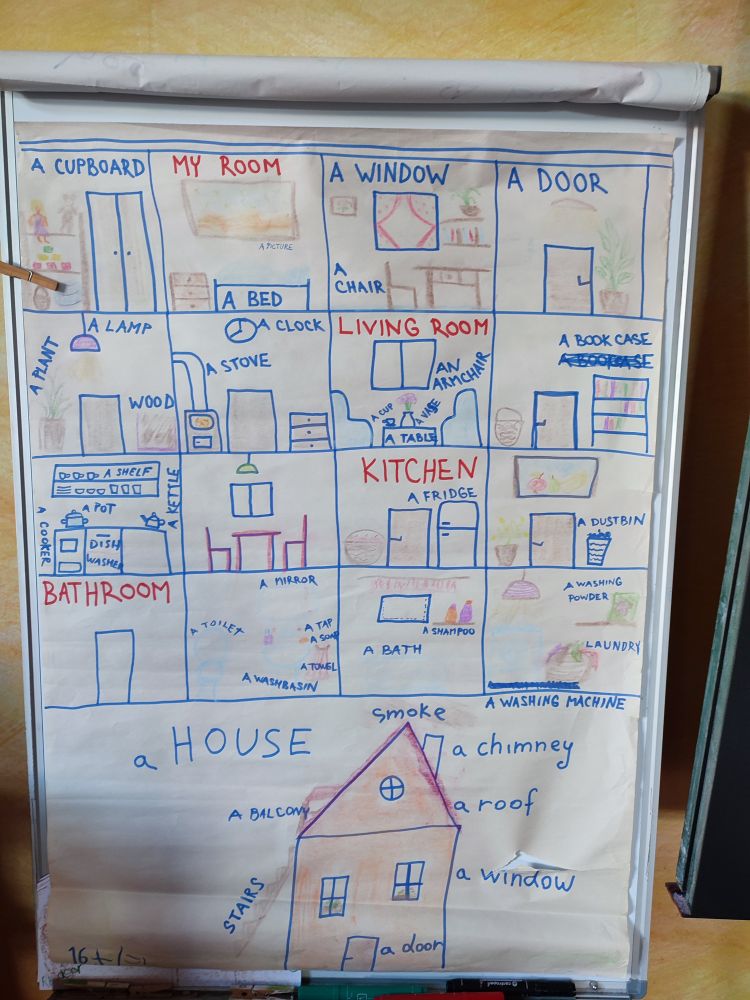 A CUPBOARD
MY ROOM
A PICTURE
A BED
A WINDOW
A
CHAIR
A DOOR
A PLANT
A LAMP
WOOD
A CLOCK
A STOVE
LIVING ROOM
AN
ARMCHAIR
A CUP
A VASE
A TABLE
A BOOK CASE
A BOOKCASE
A SHELF
A POT
A KETTLE
A COOKER
DISH
WASHER
KITCHEN
A FRIDGE
A DUSTBIN
BATHROOM
A MIRROR
A TOILET
A TAP
A SOAP
A TOWEL
A WASHBASIN
A SHAMPOO
A BATH
A WASHING
POWDER
LAUNDRY
A WASHING MACHINE
a HOUSE
smoke
a chimney
A BALCONY
a roof
a window
STAIRS
a door